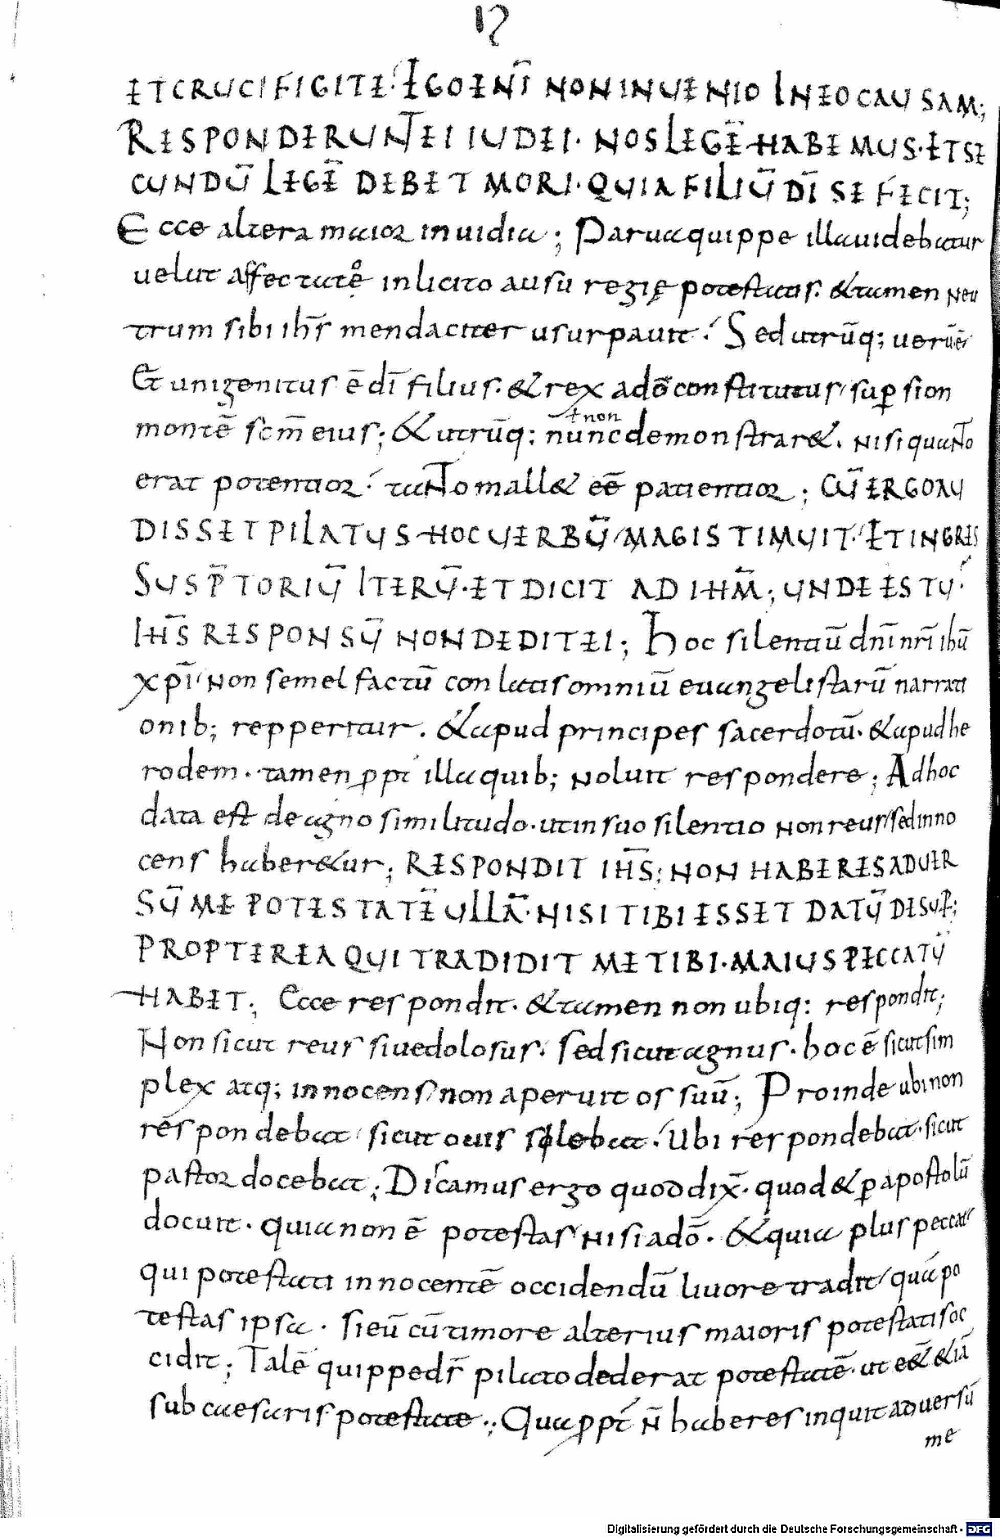 12
ETCRUCIFIGITE· EGO ENĪ NON INUENIO IN EO CAUSAM;
RESPONDERUNT EI IUDEI· NOS LEGĒ HABEMUS· ET SE
CUNDŪ LEGĒ DEBET MORI· QUIA FILIŪ DĪ SE FECIT;
Ecce altera maior inuidia; Parua quippe illa uidebatur
uelut affectatę inlicito ausu regię potestatis. & tamen neu
trum sibi ihs̄ mendaciter usurpauit. Sed utrūq; uerū ē.
Et unigenitus ē dī filius. & rex adō constitutus sup sion
montē scm̄ eius; & utrūq; nunc demonstrar&. nisi quanto
ł non
erat potentior. tanto mall& eē patientior; CŪ ERGO AU
DISSET PILATUS HOC UERBŪ MAGIS TIMUIT· ET INGRES
SUS P̄TORIŪ ITERŪ· ET DICIT AD IHM̄; UNDE ES TU·
IHS̄ RESPONSŪ NON DEDIT EI; Hoc silentiū dnī nrī ihū
xpī non semel factū conlatis omniū euangelistarū narrati
onib; repperitur. & apud principes sacerdotū. & apud he
rodem. tamen pptī illa quib; noluit respondere; Ad hoc
data est de agno similitudo. ut in suo silentio non reus sed inno
cens haber&ur; RESPONDIT IHS̄; NON HABERES ADUER
SŪ ME POTESTATĒ ULLĀ· NISI TIBI ESSET DATŪ DESUP;
PROPTEREA QUI TRADIDIT ME TIBI· MAIUS PECCATŪ
HABET; Ecce respondit. & tamen non ubiq; respondit;
Non sicut reus siue dolosus. sed sicut agnus. hoc ē sicut sim
plex atq; innocens non aperuit os suū; Proinde ubi non
respondebat sicut ouis silebat. Ubi respondebat. sicut
pastor docebat; Discamus ergo quod dix̄. quod & p apostolū
docuit. quia non ē potestas nisi adō. & quia plus peccat
qui potestati innocentē occidendū liuore tradit quā po
testas ipsa. si eū cū timore alterius maioris potestatis oc
cidit; Talē quippe dr̄ pilato dederat potestatē. ut eēt & iā
sub caesaris potestate; Qua pptī n̄ haberes inquit aduersū
me
Digitalisierung gefördert durch die Deutsche Forschungsgemeinschaft - DFG